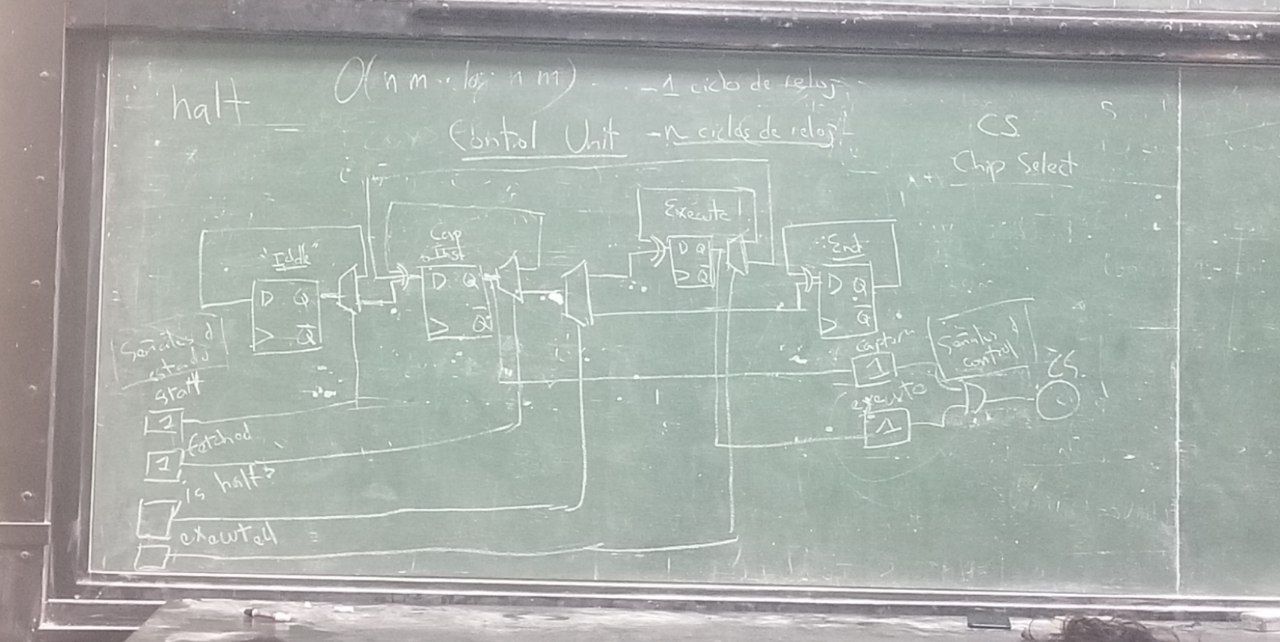 halt
O(n m · log n m)
- 1 ciclo de reloj
- n ciclos de reloj
Control Unit
CS
Chip Select
"Iddle"
D Q
Q̅
Cap
Inst
D Q
Q̅
Execute
D Q
Q̅
End
D Q
Q̅
Señales d
estado
start
1
fetched
1
is halt?
executed
Captur
1
execute
1
Señales d
control
CS